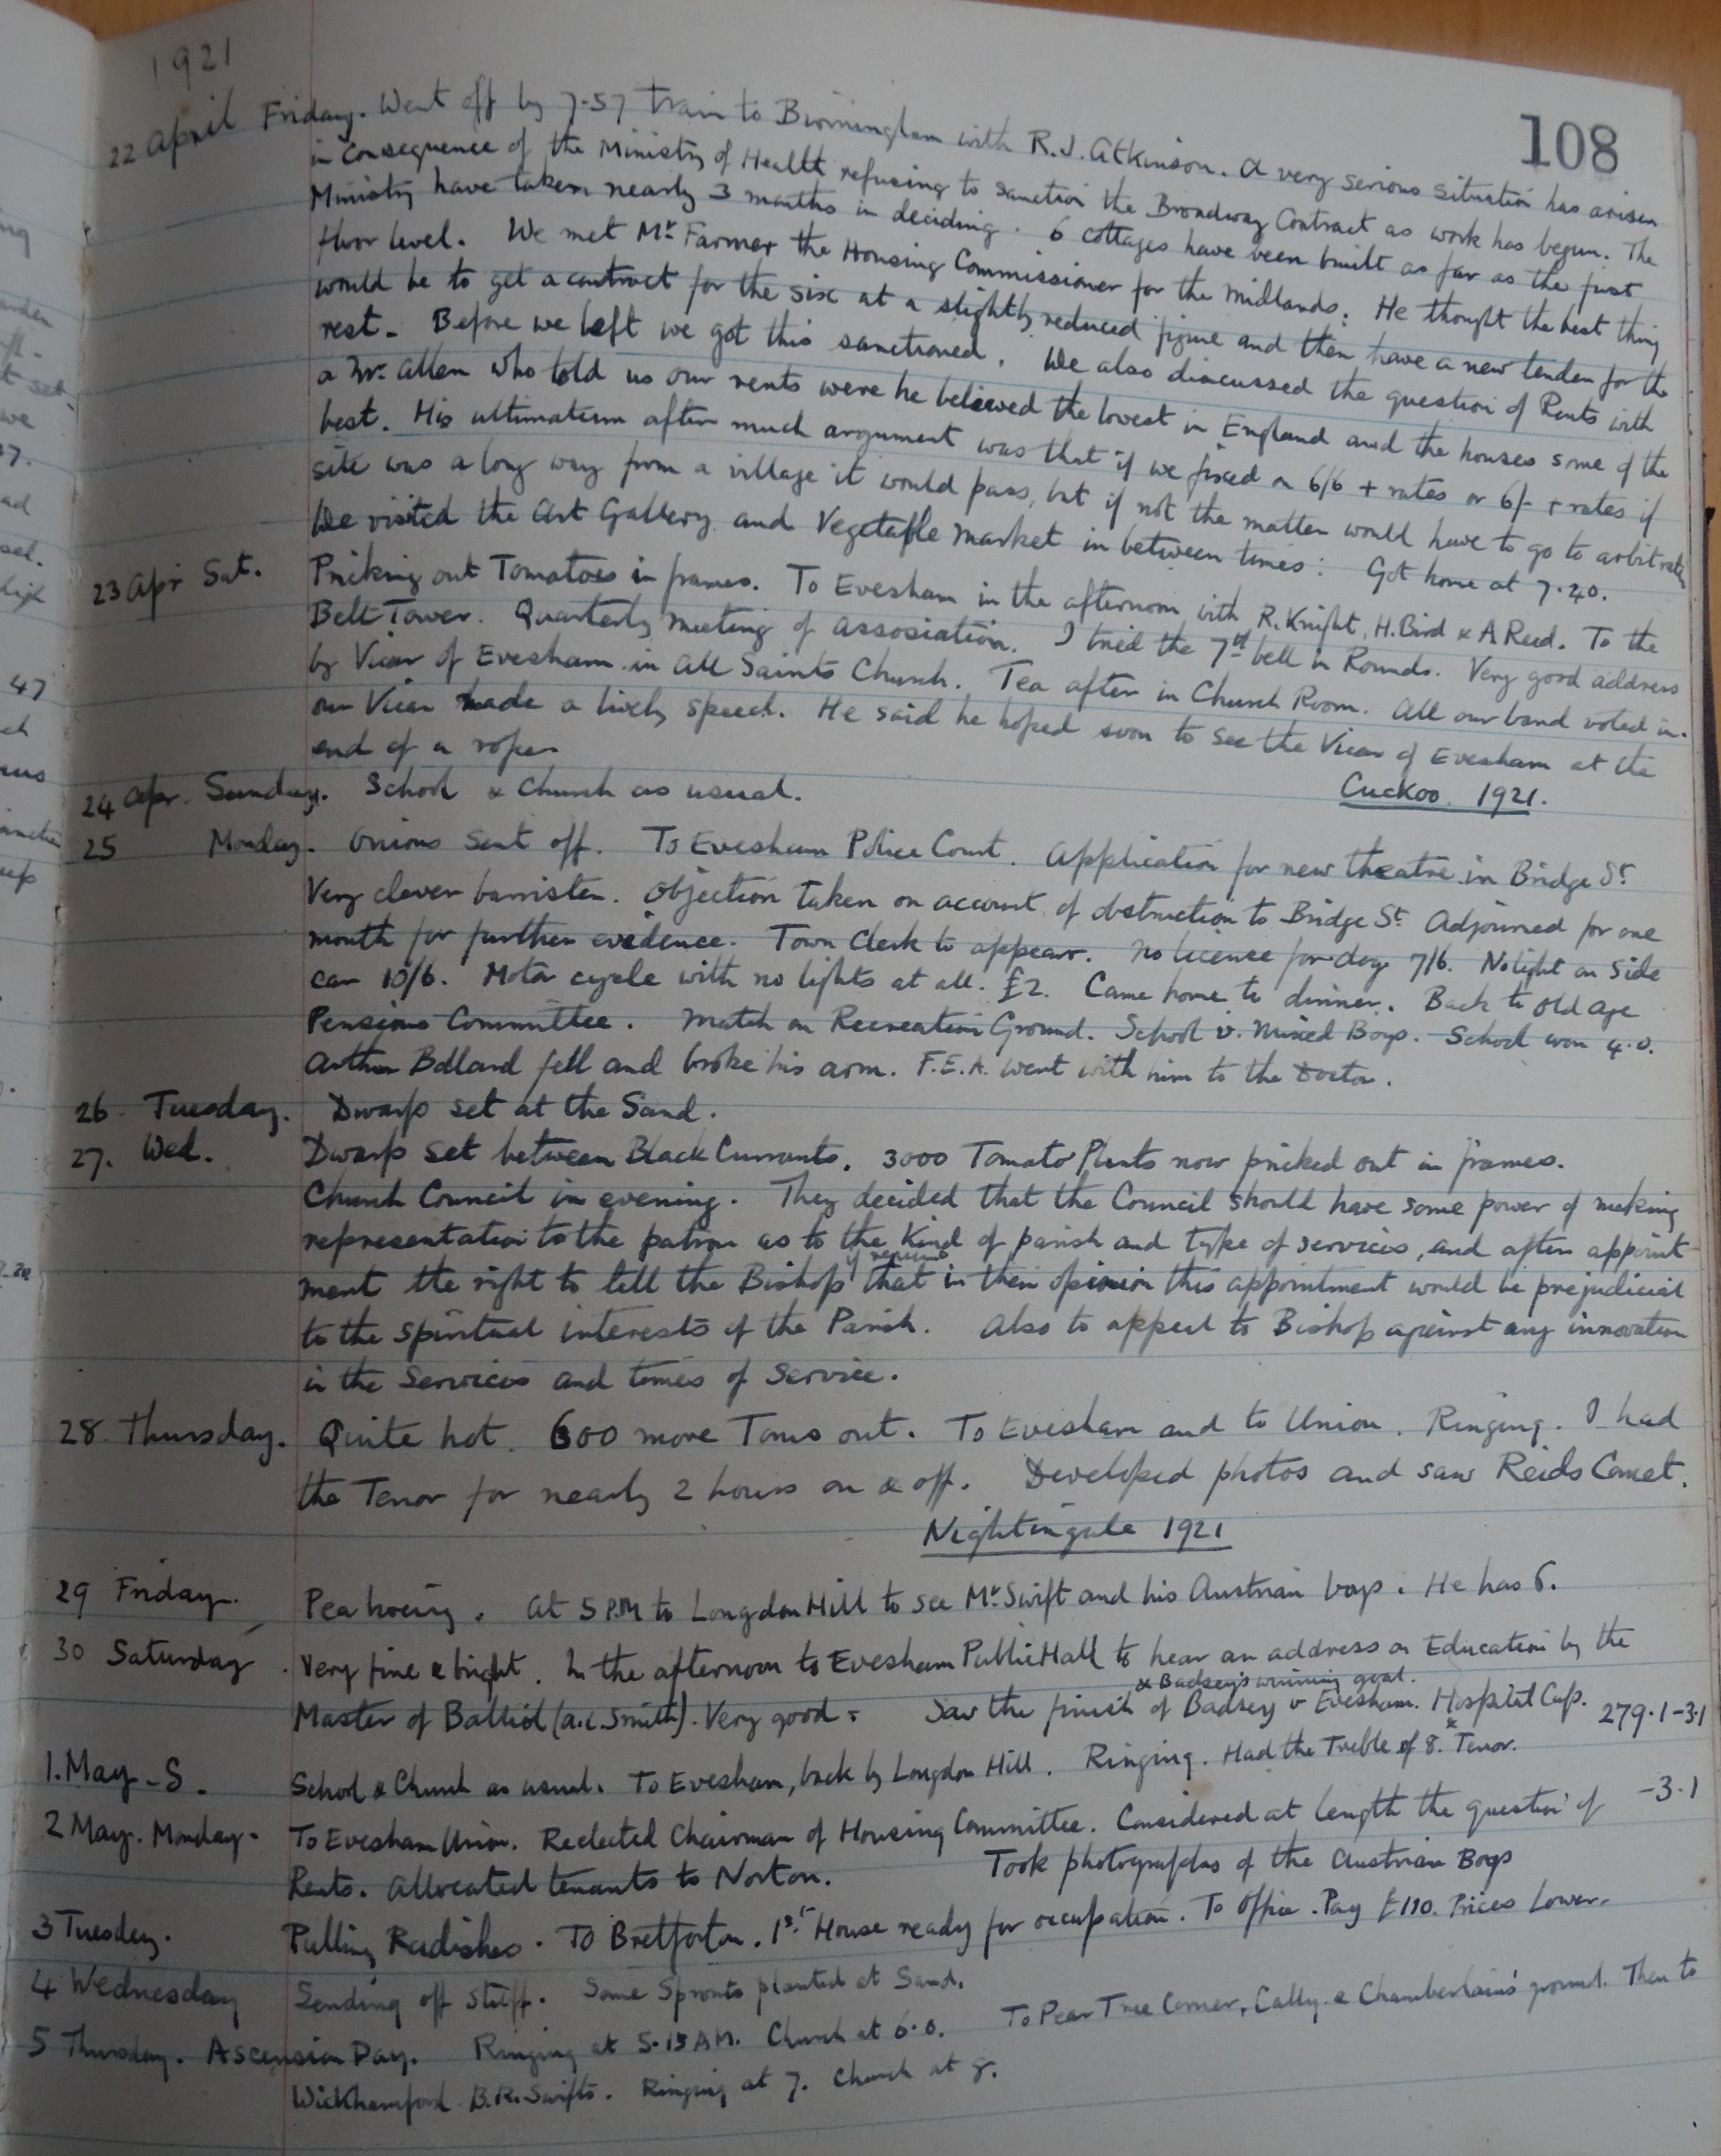 1921
108
22 April Friday. Went off by 7.57 train to Birmingham with R.J. Atkinson. A very serious situation has arisen
in consequence of the Ministry of Health refusing to sanction the Broadway Contract as work has begun. The
Ministry have taken nearly 3 months in deciding. 6 cottages have been built as far as the first
floor level. We met Mr Farmer the Housing Commissioner for the Midlands. He thought the best thing
would be to get a contract for the six at a slightly reduced figure and then have a new tender for the
rest. Before we left we got this sanctioned. We also discussed the question of Rents with
a Mr. Allen who told us our rents were he believed the lowest in England and the houses some of the
best. His ultimatum after much argument was that if we fixed on 6/6 + rates or 6/- + rates if
site was a long way from a village it would pass, but if not the matter would have to go to arbitration
We visited the Art Gallery and Vegetable Market in between times: Got home at 7.20.
23 Apr Sat. Pricking out Tomatoes in frames. To Evesham in the afternoon with R. Knight, H. Bird & A Reed. To the
Bell Tower. Quarterly meeting of Association. I tried the 7th bell in Rounds. Very good address
by Vicar of Evesham in All Saints Church. Tea after in Church Room. All our band voted in.
our Vicar made a lively speech. He said he hoped soon to see the Vicar of Evesham at the
end of a rope.
24 Apr. Sunday. School & Church as usual. Cuckoo 1921.
25 Monday. Onions sent off. To Evesham Police Court. Application for new theatre in Bridge St.
Very clever barrister. Objection taken on account of obstruction to Bridge St. Adjourned for one
month for further evidence. Town Clerk to appear. No licence for dog 7/6. No light on side
car 10/6. Motor cycle with no lights at all. £2. Came home to dinner. Back to Old Age
Pensions Committee. Match on Recreation Ground. School v. Mixed Boys. School won 4.0.
Arthur Bolland fell and broke his arm. F.E.A. went with him to the Doctor.
26 Tuesday. Dwarfs set at the Sand.
27. Wed. Dwarfs set between Black Currants. 3000 Tomato Plants now pricked out in frames.
Church Council in evening. They decided that the Council should have some power of making
representation to the patron as to the kind of parish and type of services, and after appoint-
ment the right to tell the Bishop if required that in their opinion this appointment would be prejudicial
to the spiritual interests of the Parish. Also to appeal to Bishop against any innovation
in the Services and times of Service.
28 Thursday. Quite hot. 600 more Toms out. To Evesham and to Union. Ringing. I had
the Tenor for nearly 2 hours on & off. Developed photos and saw Reids Comet.
Nightingale 1921
29 Friday. Pea hoeing. At 5 P.M to Longdon Hill to see Mr Swift and his Austrian boys. He has 6.
30 Saturday. Very fine & bright. In the afternoon to Evesham Public Hall to hear an address on Education by the
Master of Balliol (A.L. Smith). Very good. Saw the finish & Badsey's winning goal. of Badsey v Evesham. Hospital Cup. 279.1-3.1
1. May - S. School & Church as usual. To Evesham, back by Longdon Hill. Ringing. Had the Treble of 8. & Tenor.
2 May. Monday. To Evesham Union. Reelected Chairman of Housing Committee. Considered at length the question of -3.1
Rents. Allocated tenants to Norton. Took photographs of the Austrian Boys
3 Tuesday. Pulling Radishes. To Bretforton. 1st House ready for occupation. To Office. Pay £110. Prices Lower.
4 Wednesday Sending off stuff. Some Sprouts planted at Sand.
5 Thursday. Ascension Day. Ringing at 5.15 AM. Church at 6.0. To Pear Tree Corner, Cally & Chamberlain's ground. Then to
Wickhamford B.R. Swifts. Ringing at 7. Church at 8.